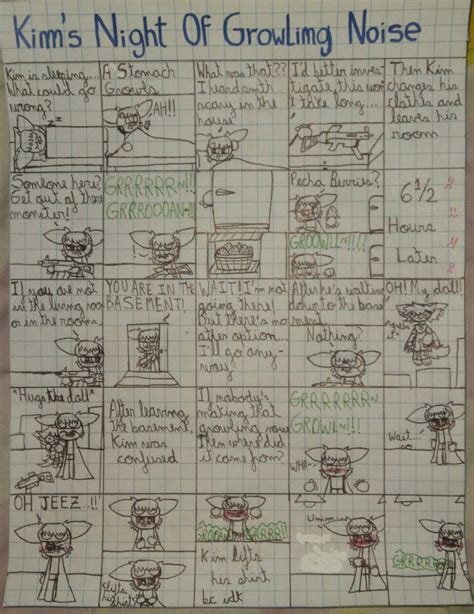 Kim's Night Of Growling Noise
Kim is sleeping...
What could go
wrong?
zz
A Stomach
Growls
AH!!
What was that??
I heard smth
scary in the
house
I'd better inves
tigate this won'
t take long...
Then Kim
changes his
cloths and
leaves his
room
Someone here?
Get out of there
monster!
GRRRRRR~!!
GRRROOOAN~!!
Pecha Berries?
GROOWLL~!!!
6 1/2
Hours
Later
If you are not
in the living roo
or in the rooms
YOU ARE IN THE
BASEMENT!
WAIT! I'm not
going there!
But there's no
other option...
I'll go any-
way
After he's walking
down to the base
ment
Nothing?
OH! My doll!
*Hugs the doll*
After leaving
the basement,
Kim was
confused
If nobody's
making that
growling noise
Then where did
it came from?
GRRRRRRR~
GROWL~!
WHA~
Wait...
so
OH JEEZ..!!
*lifts
his shirt*
Kim lifts
his shirt
bc idk
Umm...